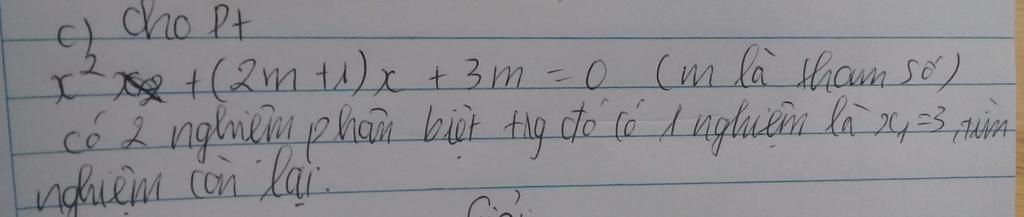 c) Cho Pt
x² + (2m+1)x + 3m = 0 (m là tham số)
có 2 nghiệm phân biệt tlg đó có 1 nghiệm là x₁=3, tìm
nghiệm còn lại.